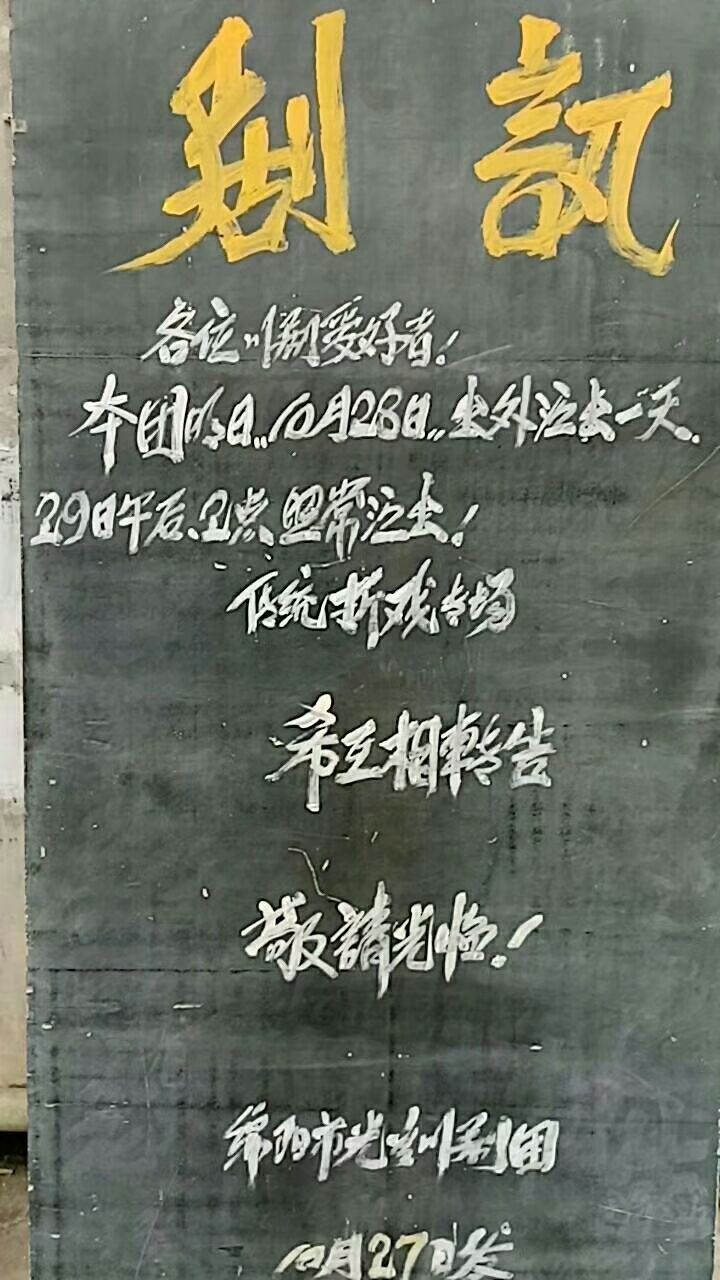 剧訊
各位川剧爱好者!
本团明日"10月28日"出外演出一天.
29日午后、2点照常演出!
传统折戏专场
希互相轉告
敬請光临!
绵阳市光川剧团
10月27日发